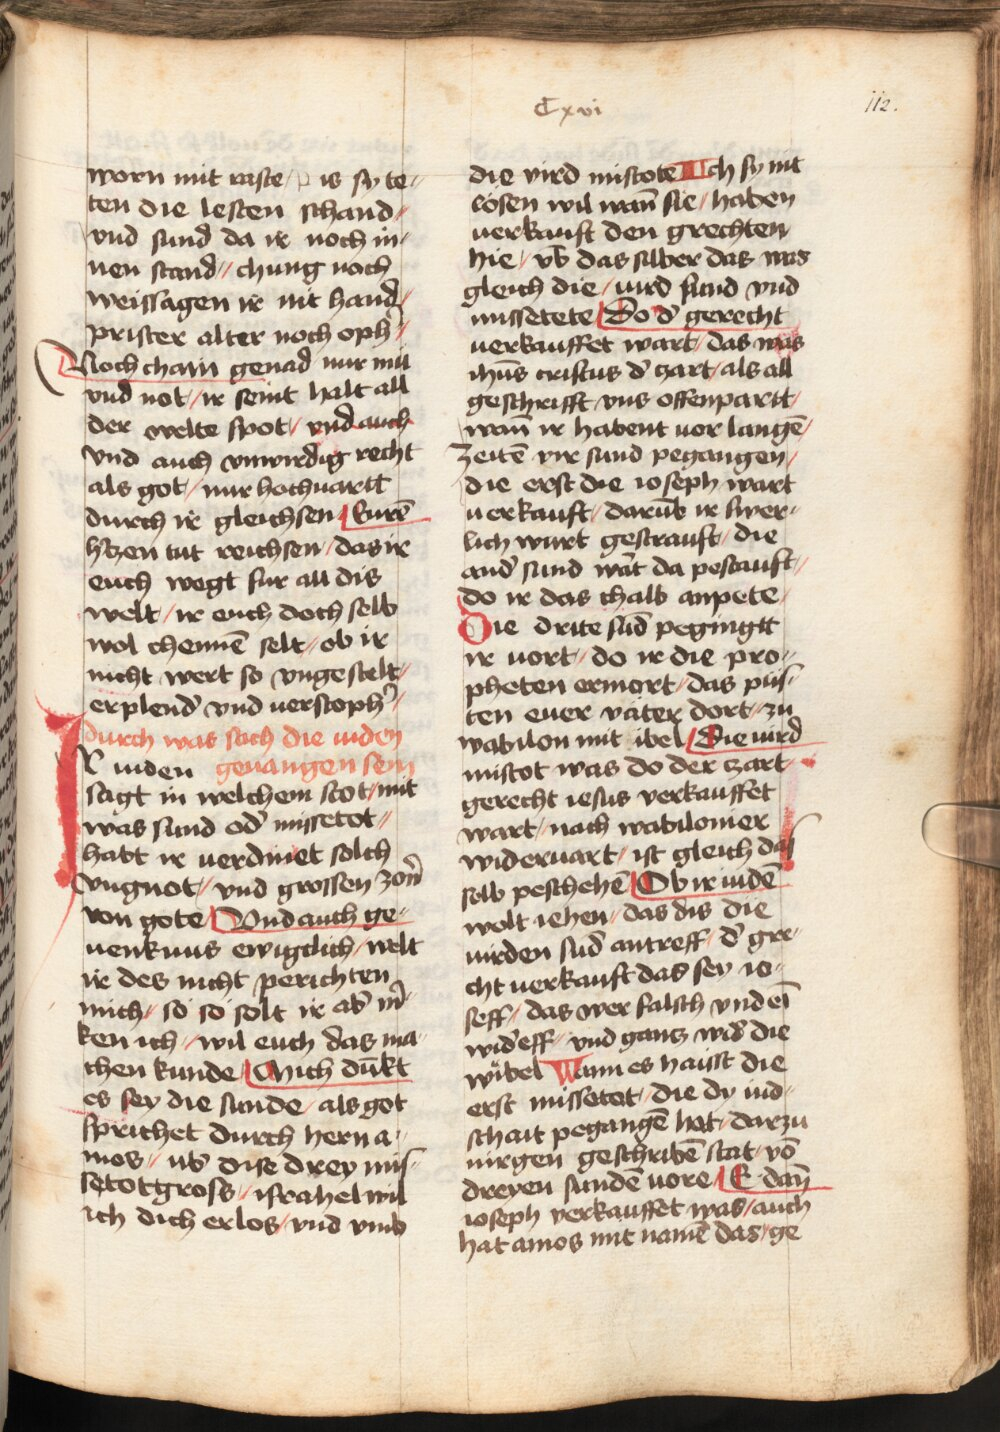 Cxvi
112.
worn mit raste / is sy te⸗
ten die lesten schand /
vnd sund da ir noch in⸗
nen stand // chung noch
weissagen ir nit hand /
prister alter noch oph'
Noch chain genad nur mü
vnd not / ir seint halt all
der welte spot / vnd auch
vnd auch vnwirdig recht
als got / nur hochuartt
durch ir gleichsen Eurē
h'tzen tut reichsen / das ir
euch wegt fur all dis
welt / ir euch doch selb
wol chennē selt / ob ir
nicht wert so vngestelt /
erplend' vnd uerstoph'
durch was sach die iuden
Ir iuden geuangen sein
sagt in welchem stot / mit
was sund od' missetot /
habt ir uerdinet solch
vngnot / vnd grossen zorn
von gote Vnd auch ge⸗
uenknus ewigclich / welt
ir des nicht perichten
mich / so so solt ir ab' m'⸗
ken ich / wil euch das ma⸗
chen kunde Mich dūkt
es sey die sunde / als got
sprichet durch hern a⸗
mos / ub' dise drey mis⸗
setot gross / israhel wil
ich dich erlos / vnd vmb
die vird mistote Ich sy nit
lösen wil wan̄ sie / haben
uerkauft den grechten
hie / vb' das silber das was
gleich die / uird sund vnd
missetete Do d' gerecht
uerkauffet wart / das was
ihūs cristus d' czart / als all
geschrifft vns offenpartt /
wan̄ ir habent vor langē
zeitē vir sund pegangen /
die erst die ioseph wart
uerkauft / darūb ir swer⸗
lich wurt gestrauft / die
and' sund wāt da pestauft /
do ir das chalb anpete
Die drite sūd pegingtt
ir uort / do ir die pro⸗
pheten ermort / das püs⸗
ten euer väter dort / zu
wabilon mit ibel Die vird
mistot was do der czart
gerecht iesus verkauffet
wart / nach wabilonier
wideruart / ist gleich das
selb peschehē Ob ir iudē
wolt iehen / das dis die
uirden sūd antreff / d' gre⸗
cht uerkauft das sey io⸗
seff / das wer falsch vnd eī
wid'eff / vnd gantz wid' die
wibel Wann es haisst die
erst missetet / die dy iud⸗
schait pegangē hat / darzu
nirgen geschribē stat / vō
dreyen sundē uore E dan̄
ioseph verkauffet was / auch
hat amos mit namē das / ge